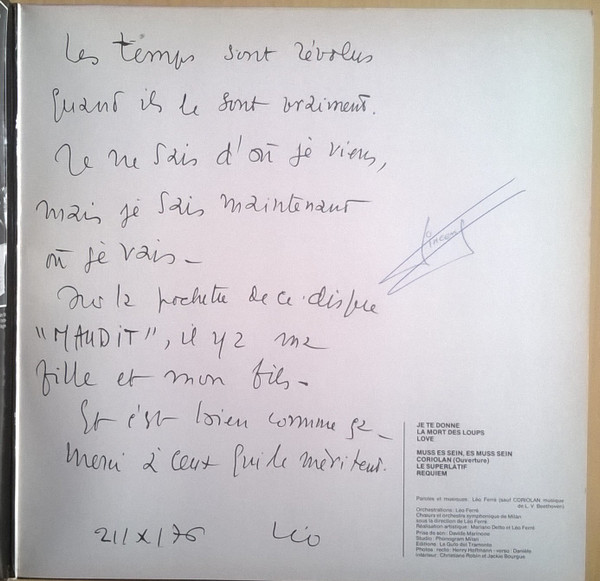 Les temps sont révolus
quand ils le sont vraiment.
Je ne sais d'où je viens,
mais je sais maintenant
où je vais –
Sur la pochette de ce disque
"MAUDIT", il y a ma
fille et mon fils –
Et c'est bien comme ça –
Merci à ceux qui le méritent.
21/X/76 Léo
JE TE DONNE
LA MORT DES LOUPS
LOVE
MUSS ES SEIN, ES MUSS SEIN
CORIOLAN (Ouverture)
LE SUPERLATIF
REQUIEM
Paroles et musiques : Léo Ferré (sauf CORIOLAN musique
de L. V. Beethoven)
Orchestrations : Léo Ferré
Chœurs et orchestre symphonique de Milan
sous la direction de Léo Ferré
Réalisation artistique : Mariano Detto et Léo Ferré
Prise de son : Davide Marinone
Studio : Phonogram Milan
Editions : Le Gufo del Tramonto
Photos : recto : Henry Hoffmann - verso : Danièle
Intérieur : Christiane Robin et Jackie Bourgue